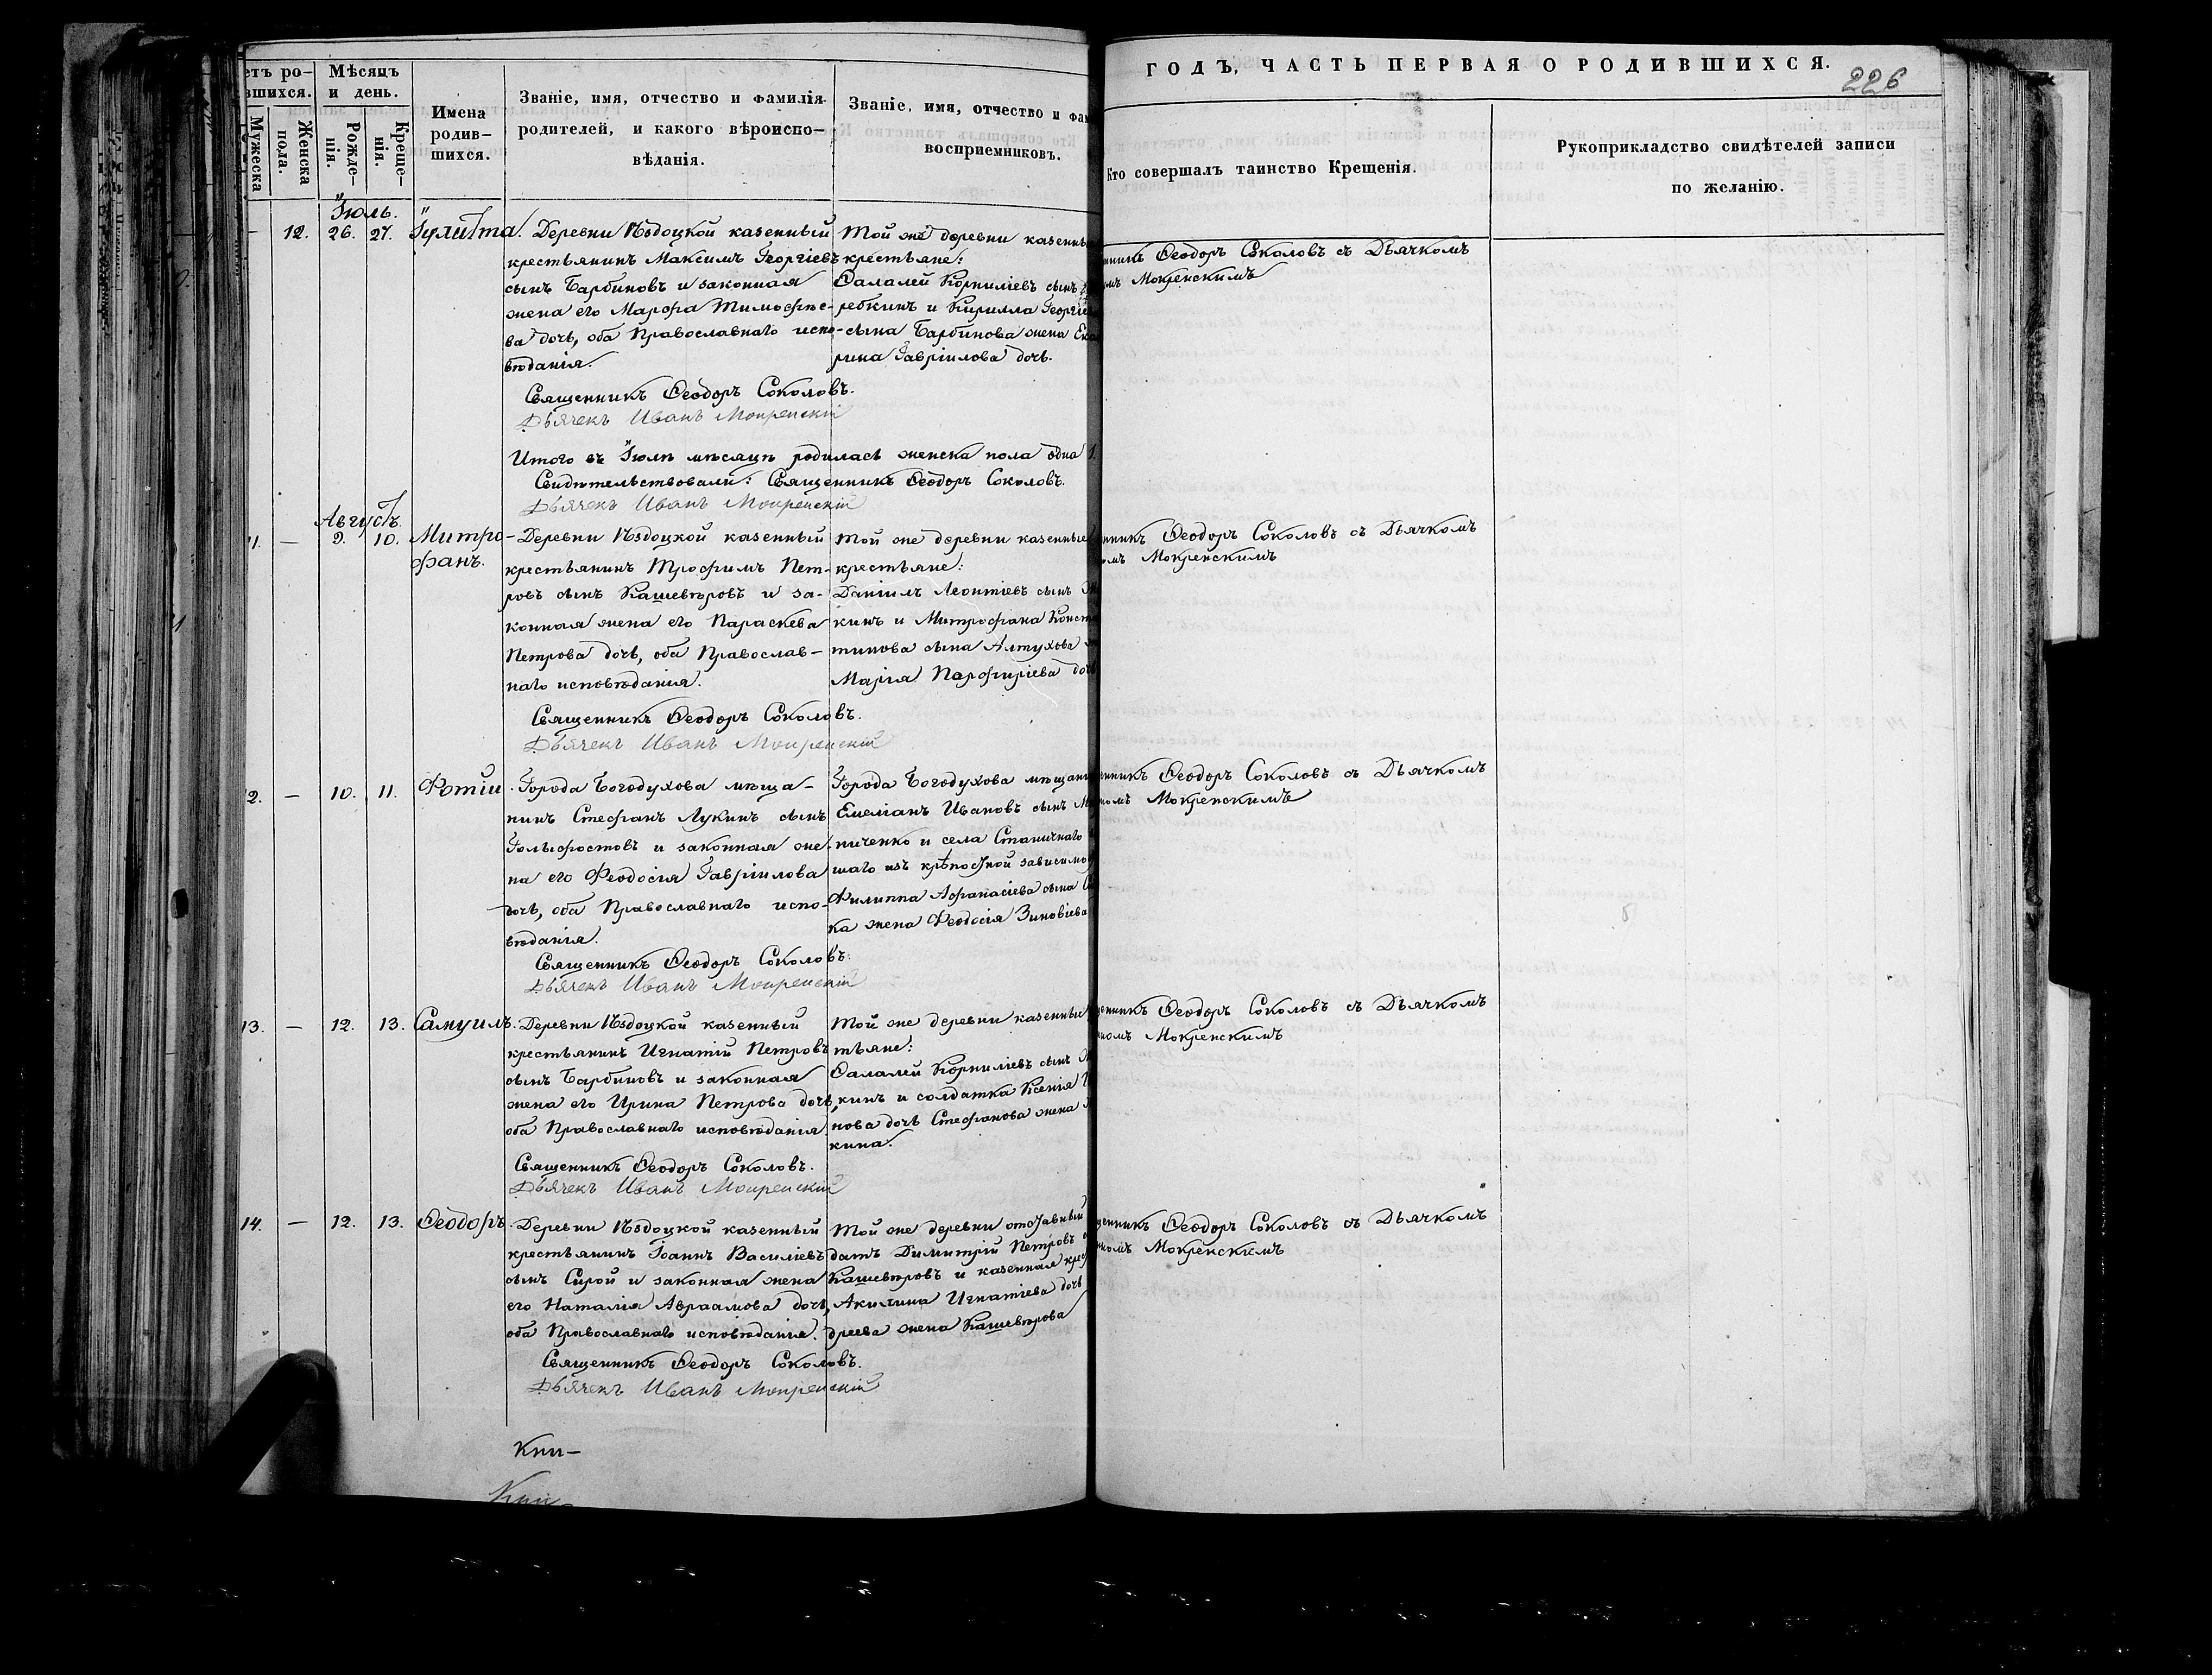 ГОДЪ, ЧАСТЬ ПЕРВАЯ О РОДИВШИХСЯ.
226
етъ ро-
вшихся.
Мужеска
Женска
пола.
Мѣсяцъ
и день.
Рожде-
нія.
Креще-
нія.
Имена
родив-
шихся.
Званіе, имя, отчество и фамилія
родителей, и какого вѣроиспо-
вѣданія.
Званіе, имя, отчество и фам
восприемниковъ.
Кто совершалъ таинство Крещенія.
Рукоприкладство свидѣтелей записи
по желанію.
Іюль.
— 12. 26. 27. Іулитта.
Деревни Ѣздоцкой казенный
крестьянинъ Максимъ Георгіевъ
сынъ Барбиновъ и законная
жена его Марфа Тимофѣе-
ва дочь, оба Православнаго испо-
вѣданія.
Священникъ Ѳеодоръ Соколовъ.
Дьячекъ Иванъ Мокренскій
Той же деревни казенны
крестьяне:
Ѳалалей Корниліевъ сынъ
ребкинъ и Кирилла Георгіе
сына Барбинова жена Ека
рина Гавріилова дочь.
нникъ Ѳеодоръ Соколовъ съ Дьячкомъ
омъ Мокренскимъ
Итого въ Іюлѣ мѣсяцѣ родилась женска пола одна 1.
Свидѣтельствовали: Священникъ Ѳеодоръ Соколовъ.
Дьячекъ Иванъ Мокренскій
Августъ.
11. — 2. 10. Митро-
фанъ.
Деревни Ѣздоцкой казенный
крестьянинъ Трофимъ Пет-
ровъ сынъ Кашевѣровъ и за-
конная жена его Параскева
Петрова дочь, оба Православ-
наго исповѣданія.
Священникъ Ѳеодоръ Соколовъ.
Дьячекъ Иванъ Мокренскій
Той же деревни казенные
крестьяне:
Даніилъ Леонтіевъ сынъ
кинъ и Митрофана Конст
тинова сына Алтухова
Марія Парфиріева доч
нникъ Ѳеодоръ Соколовъ съ Дьячкомъ
омъ Мокренскимъ
12. — 10. 11. Фотій.
Города Богодухова мѣща-
нинъ Стефанъ Лукинъ сынъ
Гольфостовъ и законная же-
на его Феодосія Гавріилова
дочь, оба Православнаго испо-
вѣданія.
Священникъ Ѳеодоръ Соколовъ.
Дьячекъ Иванъ Мокренскій
Города Богодухова мѣщани
Емеліанъ Ивановъ сынъ
ниченко и села Станичнаго
шаго изъ крѣпостной зависимо
Филиппа Афанасіева сына
ка жена Феодосія Зиновіева
енникъ Ѳеодоръ Соколовъ съ Дьячкомъ
номъ Мокренскимъ
13. — 12. 13. Самуилъ.
Деревни Ѣздоцкой казенный
крестьянинъ Игнатій Петровъ
сынъ Барбиновъ и законная
жена его Ирина Петрова дочь,
оба Православнаго исповѣданія.
Священникъ Ѳеодоръ Соколовъ.
Дьячекъ Иванъ Мокренскій
Той же деревни казенные
тьяне:
Ѳалалей Корниліевъ сынъ
кинъ и солдатка Ксенія
нова дочь Стефанова жена
кина.
щенникъ Ѳеодоръ Соколовъ съ Дьячкомъ
номъ Мокренскимъ
14. — 12. 13. Ѳеодоръ.
Деревни Ѣздоцкой казенный
крестьянинъ Іоаннъ Василіевъ
сынъ Сирой и законная жена
его Наталія Авраамова дочь,
оба Православнаго исповѣданія.
Священникъ Ѳеодоръ Соколовъ.
Дьячекъ Иванъ Мокренскій
Той же деревни отставный
датъ Димитрій Петровъ
Кашевѣровъ и казенная крес
Акилина Игнатіева дочь
дреева жена Кашевѣрова
щенникъ Ѳеодоръ Соколовъ съ Дьячкомъ
номъ Мокренскимъ
Кни-
Кни-